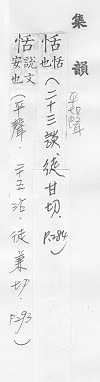 集韻
平聲
恬恬也（二十三談，徒甘切．P.284）
恬說文安也（平聲．二五沾．徒兼切．P.293）